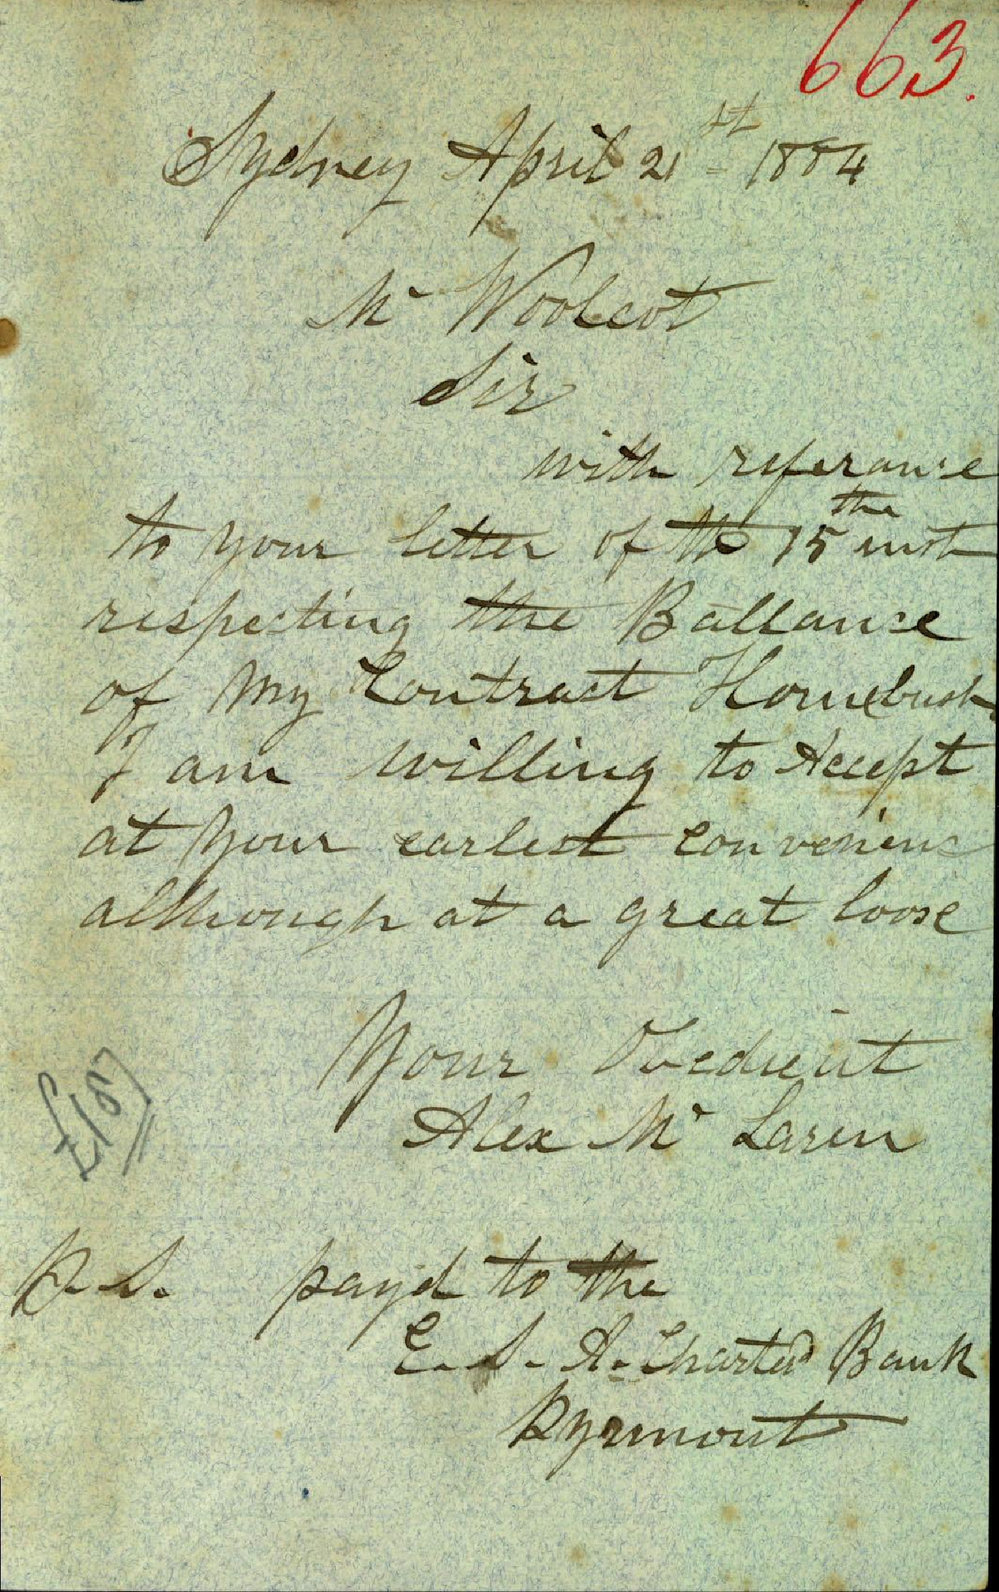 663.
Sydney April 21st 1884
Mr Woolcot
Sir
with referance
to your letter of the 15the inst
respecting the Ballance
of My Contract Homebush
I am willing to Accept
at your earlest convenienc
although at a great loose
Your Obedient
Alex Mc Laren
£187
P.S. payd to the
E. S. A. Charterd Bank
Pyrmont